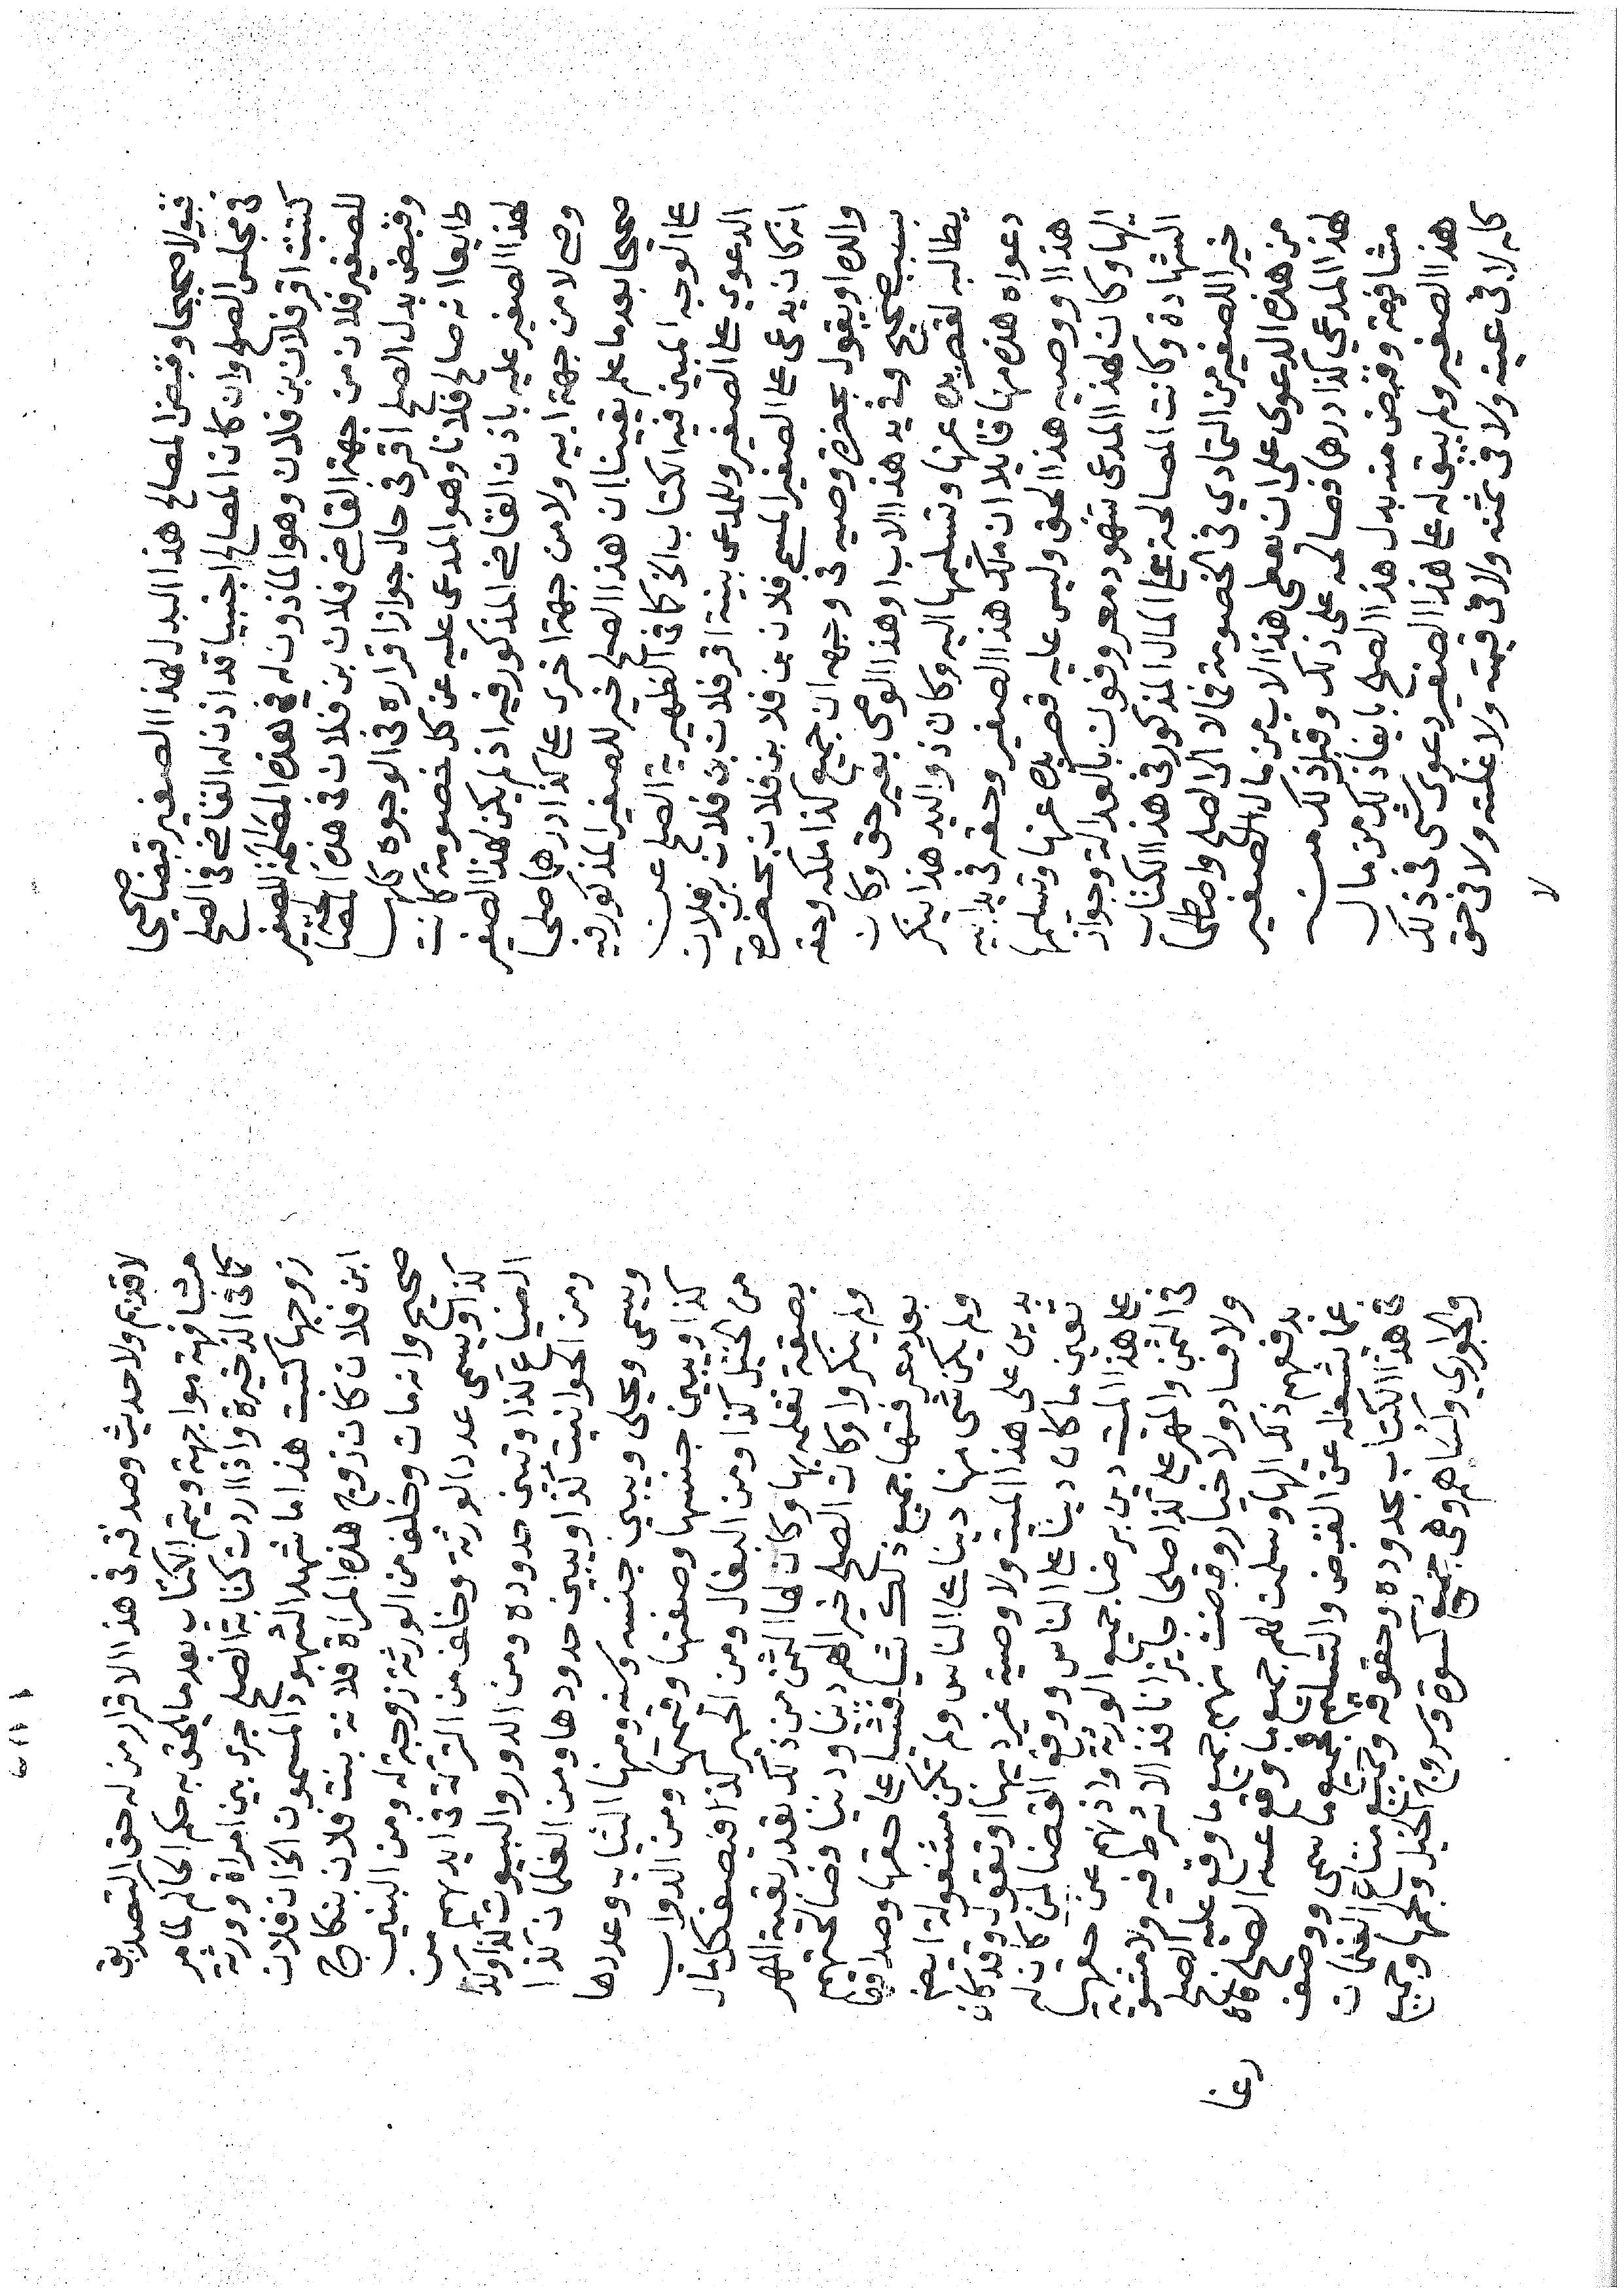 قبولا صحيحا وقبض المصالح هذا البدل لهذا الصغير قبضا صحيحا
في مجلس الصلح وان كان المصالح اجنبيا قد اذن له القاضي في الصلح
كتبت اقر فلان بن فلان وهو الماذون له في هذه المصالحة للصغير
للصغير فلان من جهة القاضي فلان بن فلان في هذه المصالحة
وقبض بدل الصلح اقر في حال جواز اقراره في الوجوه كلها
طايعا انه صالح فلانا وهو المدعى عليه عن كل خصومة كانت
لهذا الصغير عليه باذن القاضي المذكور فيه اذ لم يكن لهذا الصغير
وصي لا من جهة ابيه ولا من جهة اخرى على كذا درهما صلحا
صحيحا بعد ما علم يقينا ان هذا الصلح خير للصغير المذكور فيه
على الوجه المبين فيه الكتاب الخ كما في الظهيرية الصلح عن
الدعوي على الصغير وللمدعى بينة اقر فلان بن فلان بن فلان
انه كان يدعى على الصغير المسمى فلان بن فلان بن فلان بحضرة
والده او يقول بحضرة وصيه في وجهه ان جميع كذا ملكه وحقه
بسبب صحيح وفي يد هذا الاب او هذا الوصى بغير حق وكان
يطالبه لقصر يده عنها وتسليمها اليه وكان ذو اليد هذا ينكر
دعواه هذه منها قايلا ان ملك هذا الصغير وحقه في يد ابيه
هذا او وصيه هذا الحق وليس عليه قصر يده عنها وتسليمها
اليها وكان لهذا المدعى شهود معروفون بالعدالة وجواز
الشهادة وكانت المصالحة على المال المذكور في هذا الكتاب
خير اللصغير من التمادي في الخصومة فمالا الى الصلح واصطلحا
من هذه الدعوى على ان يعطى هذا الاب من مال الصغير
لهذا المدعى كذا درهما فصالحه على ذلك وقبل ذلك منه
مشافهة وقبض منه بدل هذا الصلح بايفاء ذلك من مال
هذا الصغير ولم يبق له على هذا الصغير دعوى شى في ذلك
كله لا في عينه ولا في ثمنه ولا في قيمته ولا غلته ولا في حق
لا
لا قديم ولا حديث وصدقه في هذا الاقرار من له حق التصديق
مشافهة مواجهة ويتم الكتاب بعد ما يلحق به حكم الحاكم لما مر
كما في الذخيرة واذا اردت كتابة الصلح جرى بين امراة وورثة
زوجها كتبت هذا ما شهد الشهود المسمون الخ ان فلان
ابن فلان كان زوج هذه المراة فلانة بنت فلان بنكاح
صحيح وانه مات وخلف من الورثة زوجة له ومن البنين
كذا ويسمى عدد الورثة وخلف من التركة في ايديهم من
الضياع كذا وتبين حدوده ومن الدور والبيوت كذا وكذا
ومن الحوانيت كذا ويبين حدودها ومن الغلمان كذا
ويسمى ويحلى ويبين جنسه وسنه ومنها الثياب وعددها
كذا ويبين جنسها وصفتها وقيمتها ومن الدواب
من الخيل كذا ومن البغال ومن الحمير كذا فيصف كل مال
بصفة تعلم بها وكان لها الثمن من ذلك بعد بقية المهر
ولم ينكروا وكان الصلح خيرا لهم دينا ودنيا وصالحتهم
بعد معرفتها جميع ذلك شيا فشيا على حقها وصداقها
ولم يكن شى منها دينا على الناس ولم تكن مشغولة ايضا
بدين على هذا الميت ولا وصية غير ديها او تقول وقد كان
تعين ما كان دينا على الناس ووقع القضا لمن كان له
على هذا الميت دين برضا جميع الورثة واذنهم عن حقها
في الثمن والمهر على كذا صلحا جايزا نافذا لا شرط فيه ولا مثنوية
ولا فساد ولا خيار وقبضت منهم جميع ما وقع عليه الصلح
بدفعهم ذلك اليها وسلمت لهم جميع ما وقع عنه الصلح هذه
عما يشغله عن القبض والتسليم فجميع ما سمى ووصف
في هذا الكتاب بحدوده وحقوقه وجميع متاع الغلمان
والجوارى ولباسهم وهي جميع كسوة وسروج الخيل ولجمها وجميع